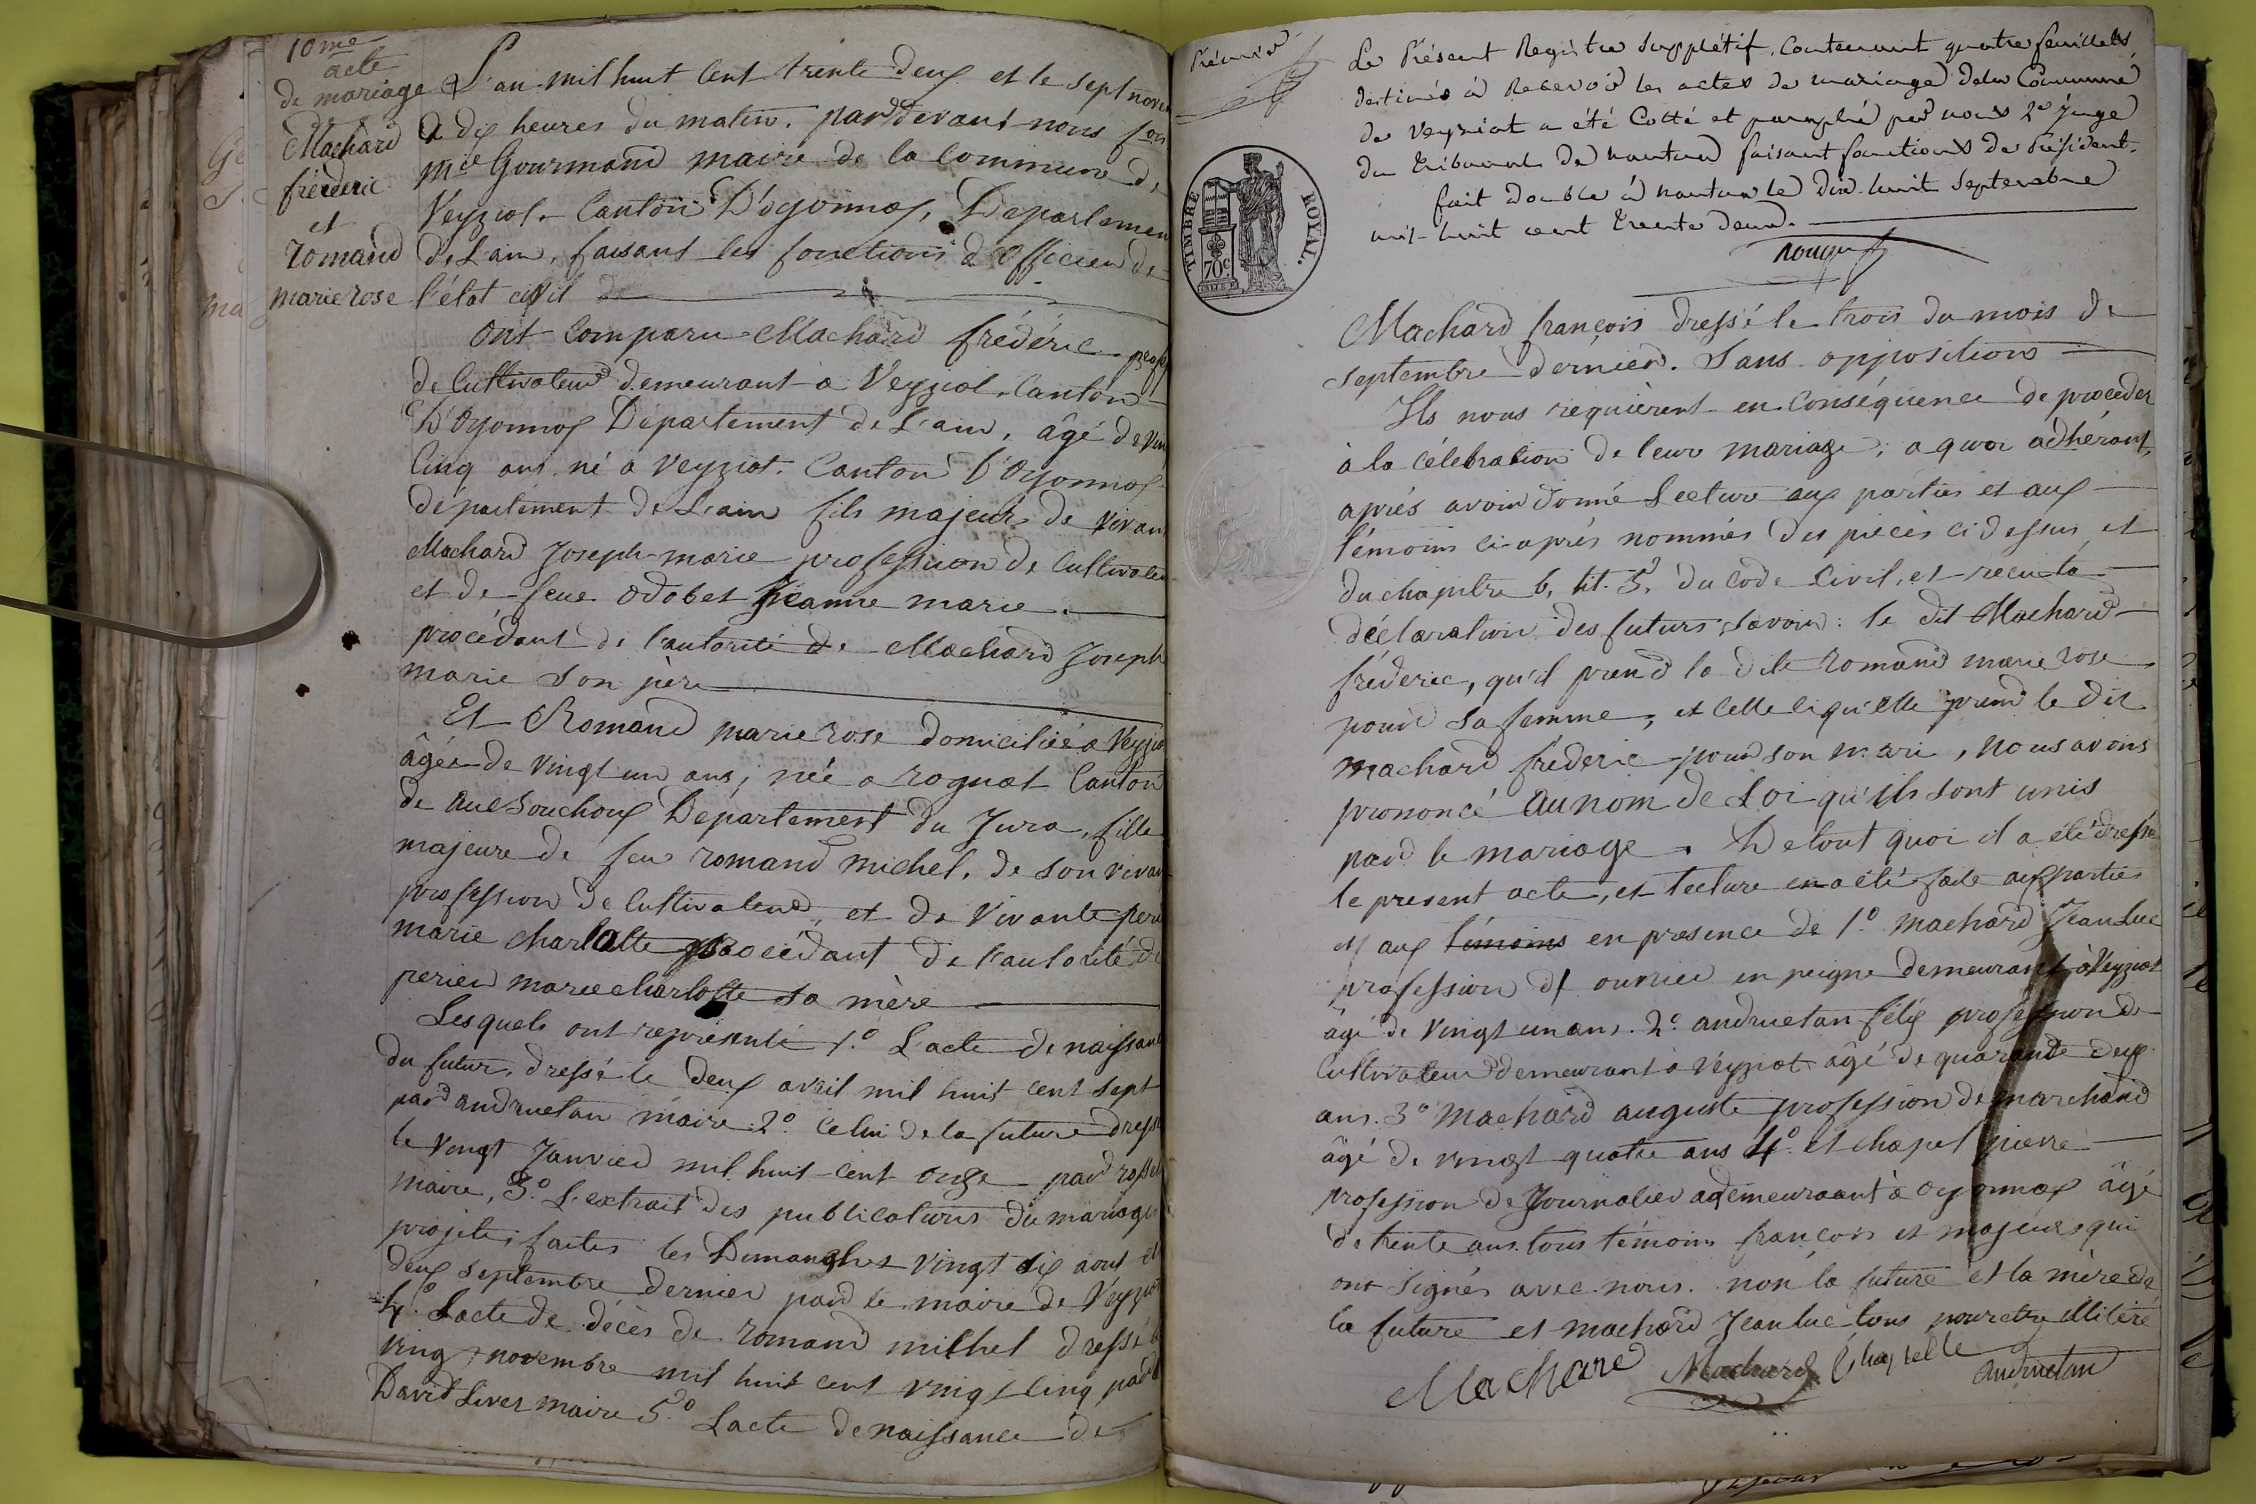 10me
acte
de mariage
Machard
fréderic
et
romand
marie rose
L'an mil huit cent trente deux et le sept novem
à dix heures du matin. pardevant nous fois
mie Gourmand maire de la commune de
Veyziat. Canton D'oyonnax, Departemen
de L'ain, faisant les fonctions d'officier de
l'état civil
ont comparu Machard frédéric profes
de Cultivateur demeurant à Veyziat. Canton
D'Oyonnax Departement de L'ain, âgé de vin
Cinq ans né à veyziat. Canton D'Oyonnax
departement de L'ain fils majeur de vivan
Machard Joseph-marie profession de Cultivateu
et de feue odobet Jeanne marie.
procédant de l'autorité de Machard Joseph
marie son père
Et Romand marie rose domiciliée à Veyzia
âgée de vingt un ans, née a rognat Canton
de Bouchoux Departement du Jura, fille
majeure de feu romand michel, de son vivan
profession de Cultivateur, et de vivante perie
marie charlotte procédant de l'autorité de
perier marie charlotte sa mère
Lesquels ont représenté 1.º L'acte de naissan
du futur, dressé le deux avril mil huit cent sept
par andruetan maire. 2º. Celui de la future dressé
le vingt Janvier mil huit-cent onze par rosset
maire, 3.º L'extrait des publications du mariage
projeté, faites les Dimanches vingt six aout et
deux septembre dernier par le maire de Veyziat
4.º L'acte de décès de romand michel dressé le
vingt novembre mil huit cent vingt cinq par
David maire 5.º L'acte de naissance de
Premier
Le Présent Registre supplétif, Contenant quatre feuillets,
destinés à Recevoir les actes de mariage de la Commune
de Veyziat a été Cotté et paraphé par nous 2e Juge
du tribunal de nantua faisant fonctions de Président.
fait double à nantua le dix huit septembre
mil-huit cent trente deux.
TIMBRE ROYAL.
70c
Machard françois dressé le trois du mois de
septembre dernier. Sans oppositions
Ils nous requièrent en Conséquence de procéder
à la célébration de leur mariage; a quoi adhérant,
aprés avoir donné Lecture aux parties et aux
témoins ci-aprés nommés des pièces ci dessus et
du chapitre 6, tit. 5, du Code Civil, et recu la
déclaration des futurs, savoir: le dit Machard
fréderic, qu'il prend la dite romand marie rose
pour sa femme, et celle ci qu'elle prend le dit
machard fréderic pour son mari, Nous avons
prononcé au nom de Loi qu'ils sont unis
par le mariage. De tout quoi il a été dressé
le present acte, et lecture en a été faite aux parties
et aux témoins en presence de 1.º machard Jean Luc
profession d'ouvrier en peigne demeurant à Veyziat
âgé de vingt un ans. 2.º andruetan félix profession de
Cultivateur demeurant à Veyziat âgé de quarante deux
ans. 3.º Machard auguste profession de marchand
âgé de vingt quatre ans 4.º et chapel pierre
profession de Journalier demeurant à oyonnax âgé
de trente ans. tous témoins françois et majeurs qui
ont signés avec nous. non la future et la mère de
la future et machard Jean luc tous pour etre illitéré
Machard Machard Chapelle
andruetan